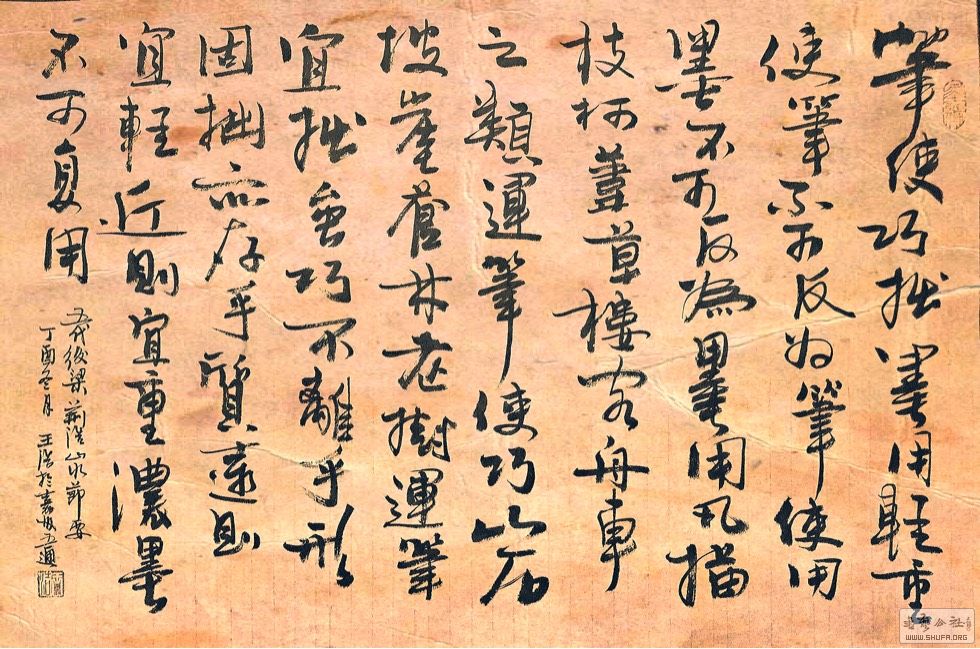 筆使巧拙墨用輕重
使筆不可反为筆使用
墨不可反為墨用凡描
枝柯葦草樓閣舟車
之類運筆使巧山石
坡崖蒼林老樹運筆
宜拙雖巧不離乎形
固拙亦存乎質遠則
宜輕近則宜重濃墨
不可复用
五代後梁荊浩山水節要
丁酉冬月 王浩於嘉州五通
WWW.SHUFA.ORG